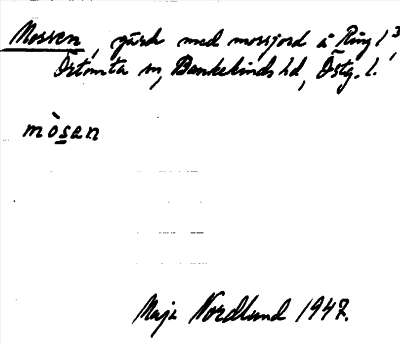 Mossen, gård med mossjord å Ring 1³,
Örtomta sn, Bankekinds hd, Östg. l.
mòsan
Maja Nordlund 1947.